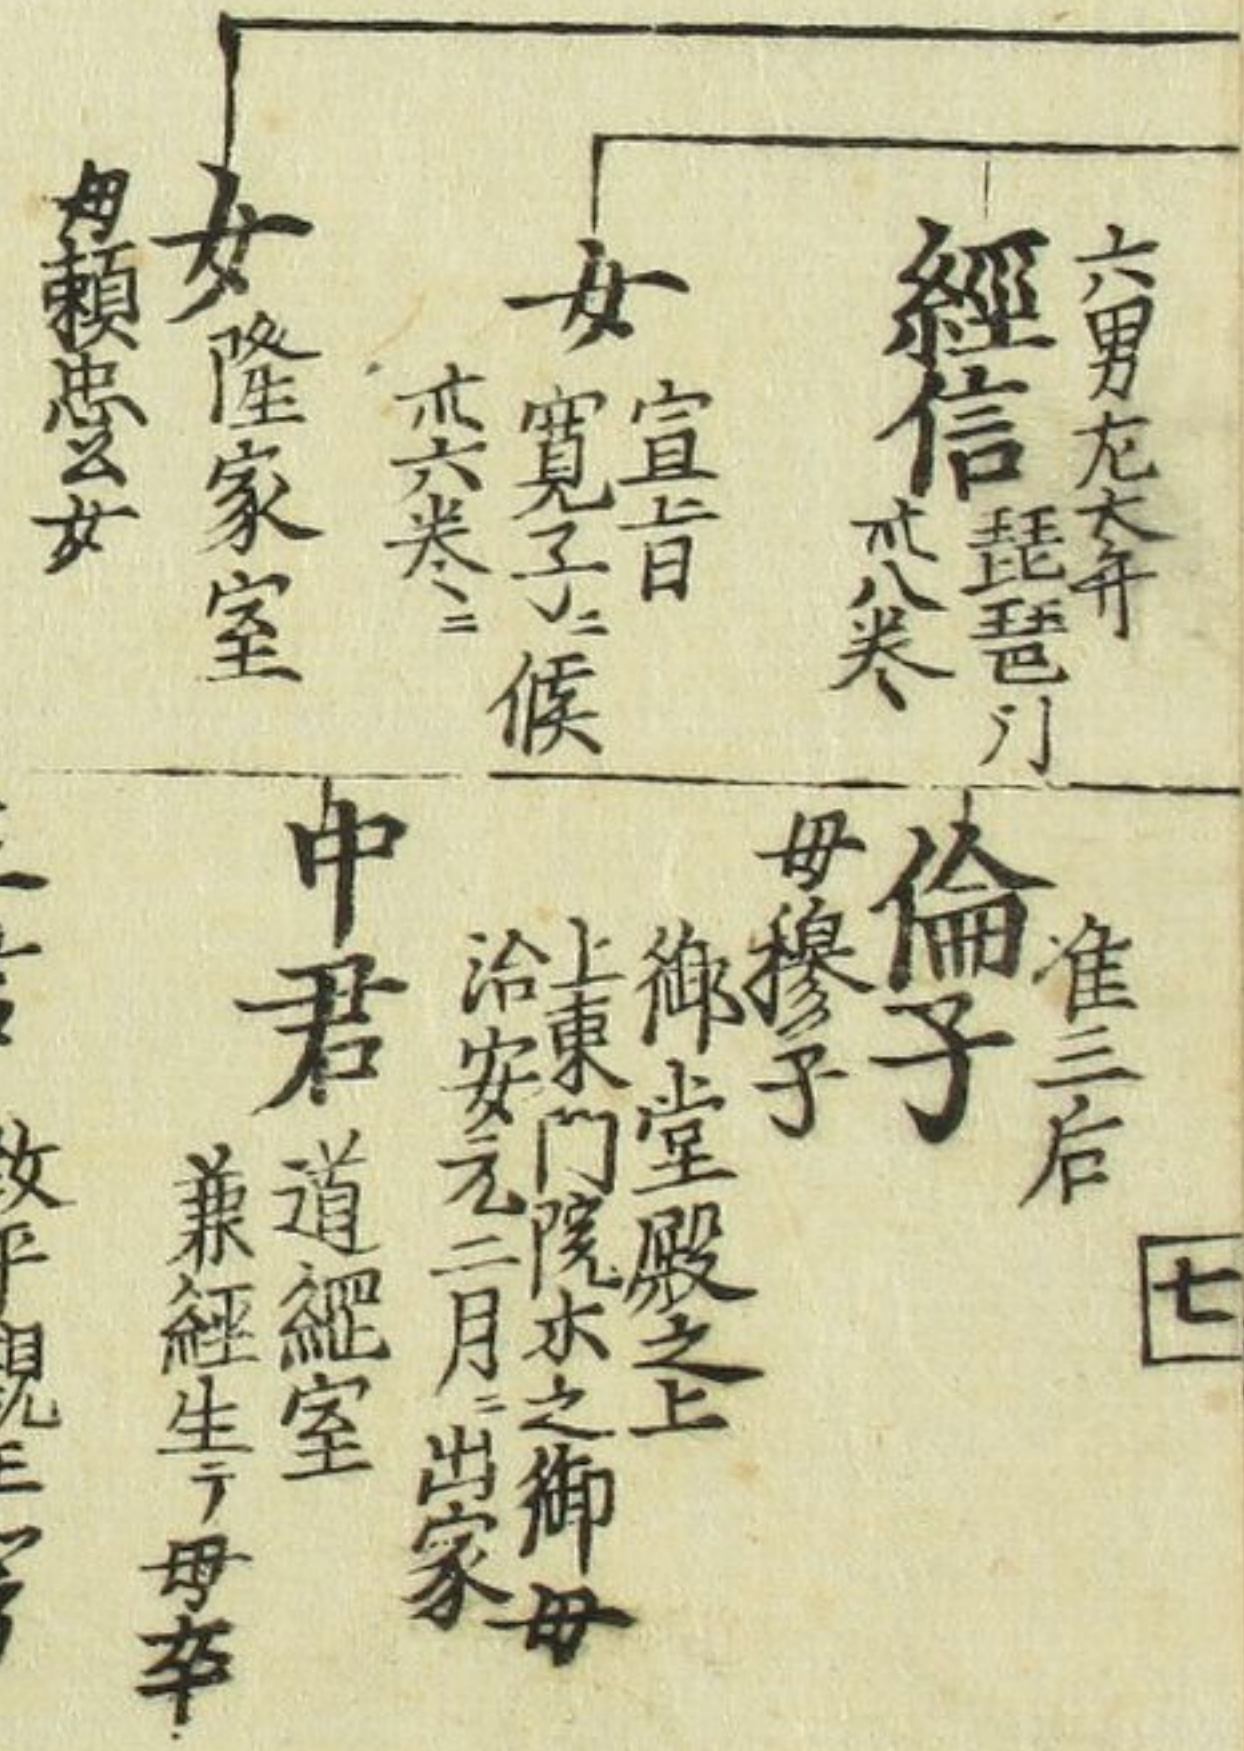 六男左大弁
經信
琵琶引
卅八巻
女
宣旨
寛子ニ候
卅六巻ニ
女
隆家室
母頼忠公女
七
准三后
倫子
母穆子
御堂殿之上
上東門院木之御母
治安元二月ニ出家
中君
道綱室
兼経生テ母卒